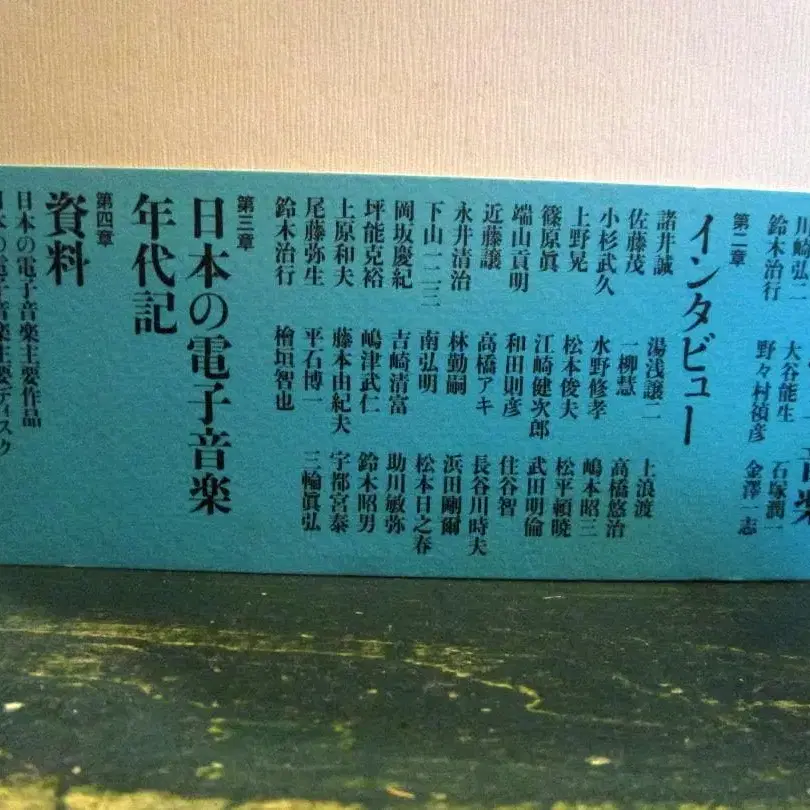 音楽
川崎弘二 大谷能生 石塚潤一
鈴木治行 野々村禎彦 金澤一志
第二章
インタビュー
諸井誠 湯浅譲二 上浪渡
佐藤茂 一柳慧 高橋悠治
小杉武久 水野修孝 嶋本昭三
上野晃 松本俊夫 松平頼暁
篠原眞 江崎健次郎 武田明倫
端山貢明 和田則彦 住谷智
近藤譲 高橋アキ 長谷川時夫
永井清治 林勤嗣 浜田剛爾
下山一二三 南弘明 松本日之春
岡坂慶紀 吉崎清富 助川敏弥
坪能克裕 嶋津武仁 鈴木昭男
上原和夫 藤本由紀夫 宇都宮泰
尾藤弥生 平石博一 三輪眞弘
鈴木治行 檜垣智也
第三章
日本の電子音楽
年代記
第四章
資料
日本の電子音楽主要作品
日本の電子音楽主要ディスク